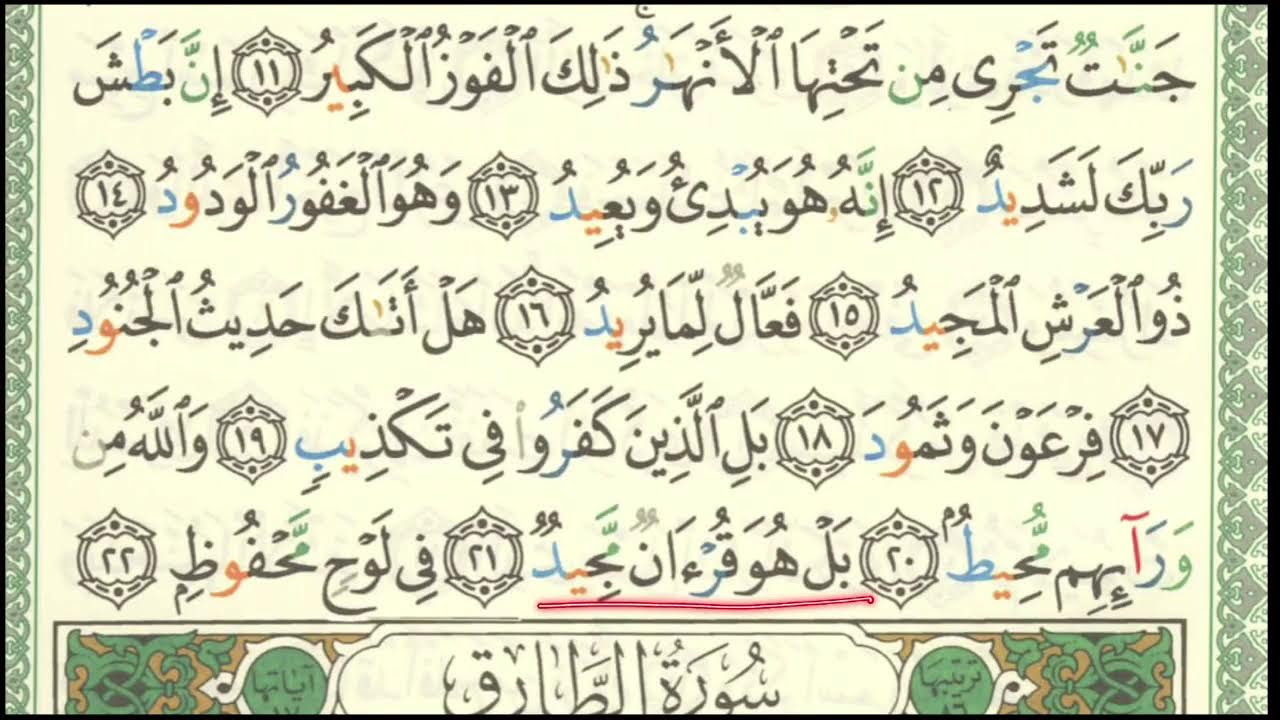 جَنَّٰتٌ تَجْرِى مِن تَحْتِهَا ٱلْأَنْهَٰرُ ذَٰلِكَ ٱلْفَوْزُ ٱلْكَبِيرُ ١١ إِنَّ بَطْشَ
رَبِّكَ لَشَدِيدٌ ١٢ إِنَّهُۥ هُوَ يُبْدِئُ وَيُعِيدُ ١٣ وَهُوَ ٱلْغَفُورُ ٱلْوَدُودُ ١٤
ذُو ٱلْعَرْشِ ٱلْمَجِيدُ ١٥ فَعَّالٌ لِّمَا يُرِيدُ ١٦ هَلْ أَتَىٰكَ حَدِيثُ ٱلْجُنُودِ
١٧ فِرْعَوْنَ وَثَمُودَ ١٨ بَلِ ٱلَّذِينَ كَفَرُوا۟ فِى تَكْذِيبٍ ١٩ وَٱللَّهُ مِن
وَرَآئِهِم مُّحِيطٌۢ ٢٠ بَلْ هُوَ قُرْءَانٌ مَّجِيدٌ ٢١ فِى لَوْحٍ مَّحْفُوظٍۭ ٢٢
ترتيبها ٨٦ سُورَةُ ٱلطَّارِقِ آياتها ١٧